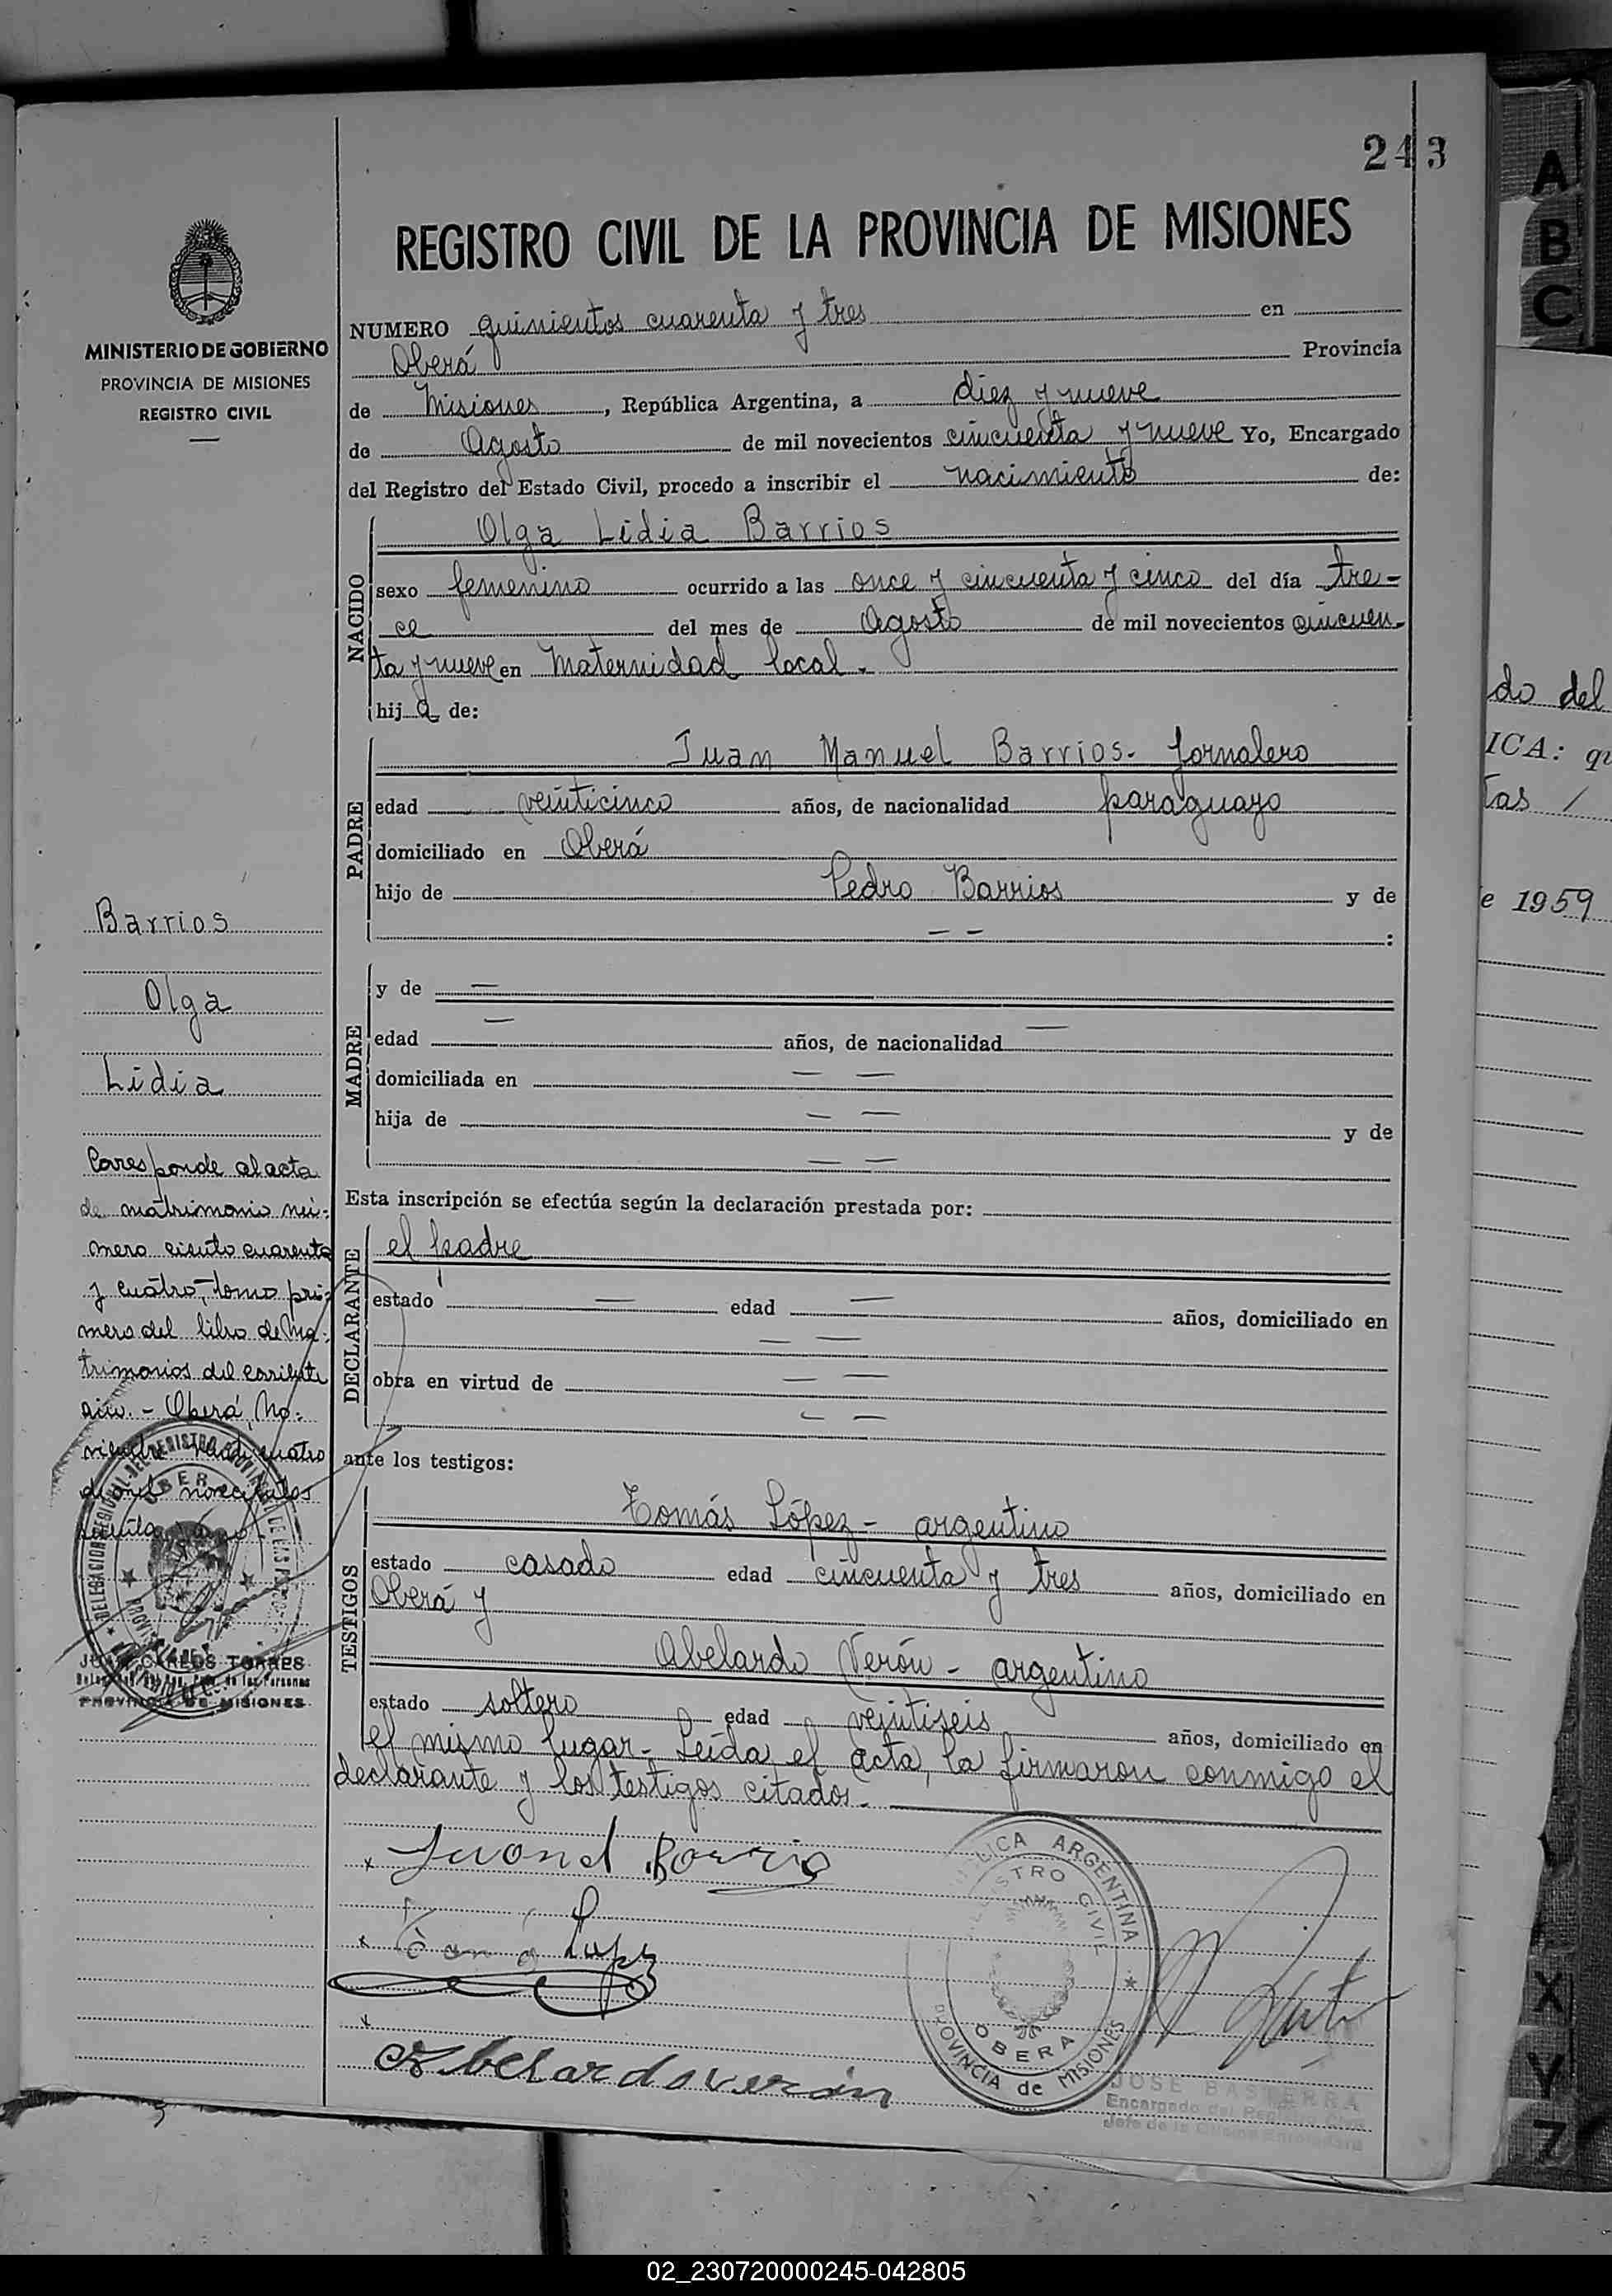 243
MINISTERIO DE GOBIERNO
PROVINCIA DE MISIONES
REGISTRO CIVIL
REGISTRO CIVIL DE LA PROVINCIA DE MISIONES
NUMERO quinientos cuarenta y tres en
Oberá Provincia
de Misiones, República Argentina, a diez y nueve
de Agosto de mil novecientos cincuenta y nueve Yo, Encargado
del Registro del Estado Civil, procedo a inscribir el nacimiento de:
NACIDO
Olga Lidia Barrios
sexo femenino ocurrido a las once y cincuenta y cinco del día tre-
ce del mes de Agosto de mil novecientos cincuen-
ta y nueve en Maternidad local.
hija de:
PADRE
Juan Manuel Barrios- Jornalero
edad veinticinco años, de nacionalidad paraguayo
domiciliado en Oberá
hijo de Pedro Barrios y de
— — :
MADRE
y de —
edad — años, de nacionalidad —
domiciliada en — —
hija de — — y de
— —
Esta inscripción se efectúa según la declaración prestada por:
DECLARANTE
el padre
estado — edad — años, domiciliado en
— —
obra en virtud de — —
— —
ante los testigos:
TESTIGOS
Tomás López- argentino
estado casado edad cincuenta y tres años, domiciliado en
Oberá y
Abelardo Verón- argentino
estado soltero edad veintiseis años, domiciliado en
el mismo lugar- Leída el acta, la firmaron conmigo el
declarante y los testigos citados.-
Barrios
Olga
Lidia
Corresponde al acta
de matrimonio nú-
mero ciento cuarenta
y cuatro, tomo pri-
mero del libro de Ma-
trimonios del corriente
año.- Oberá, No-
viembre veinticuatro
de mil novecientos
JUAN CARLOS TORRES
PROVINCIA DE MISIONES
x Barrio
x
x Abelardo verón
REPUBLICA ARGENTINA
REGISTRO CIVIL
OBERA
PROVINCIA de MISIONES
JOSE BASTERRA
Encargado del Registro Civil
do del
ICA: qu
tas /
e 1959
A
B
C
X
Y
Z
02_230720000245-042805